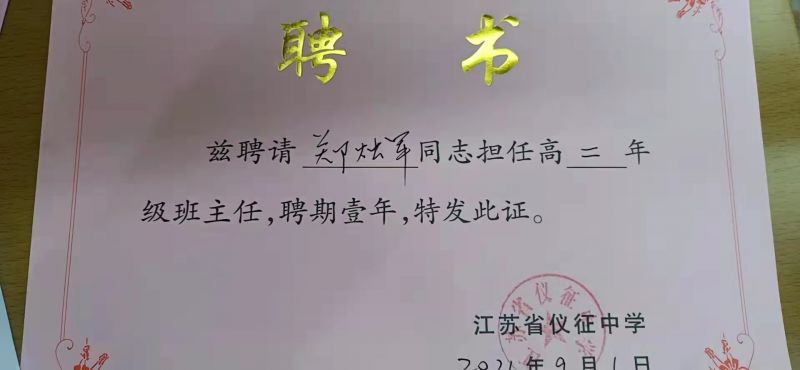 聘书
兹聘请 郑灿军 同志担任高 二 年
级班主任,聘期壹年,特发此证。
江苏省仪征中学
2021年9月1日